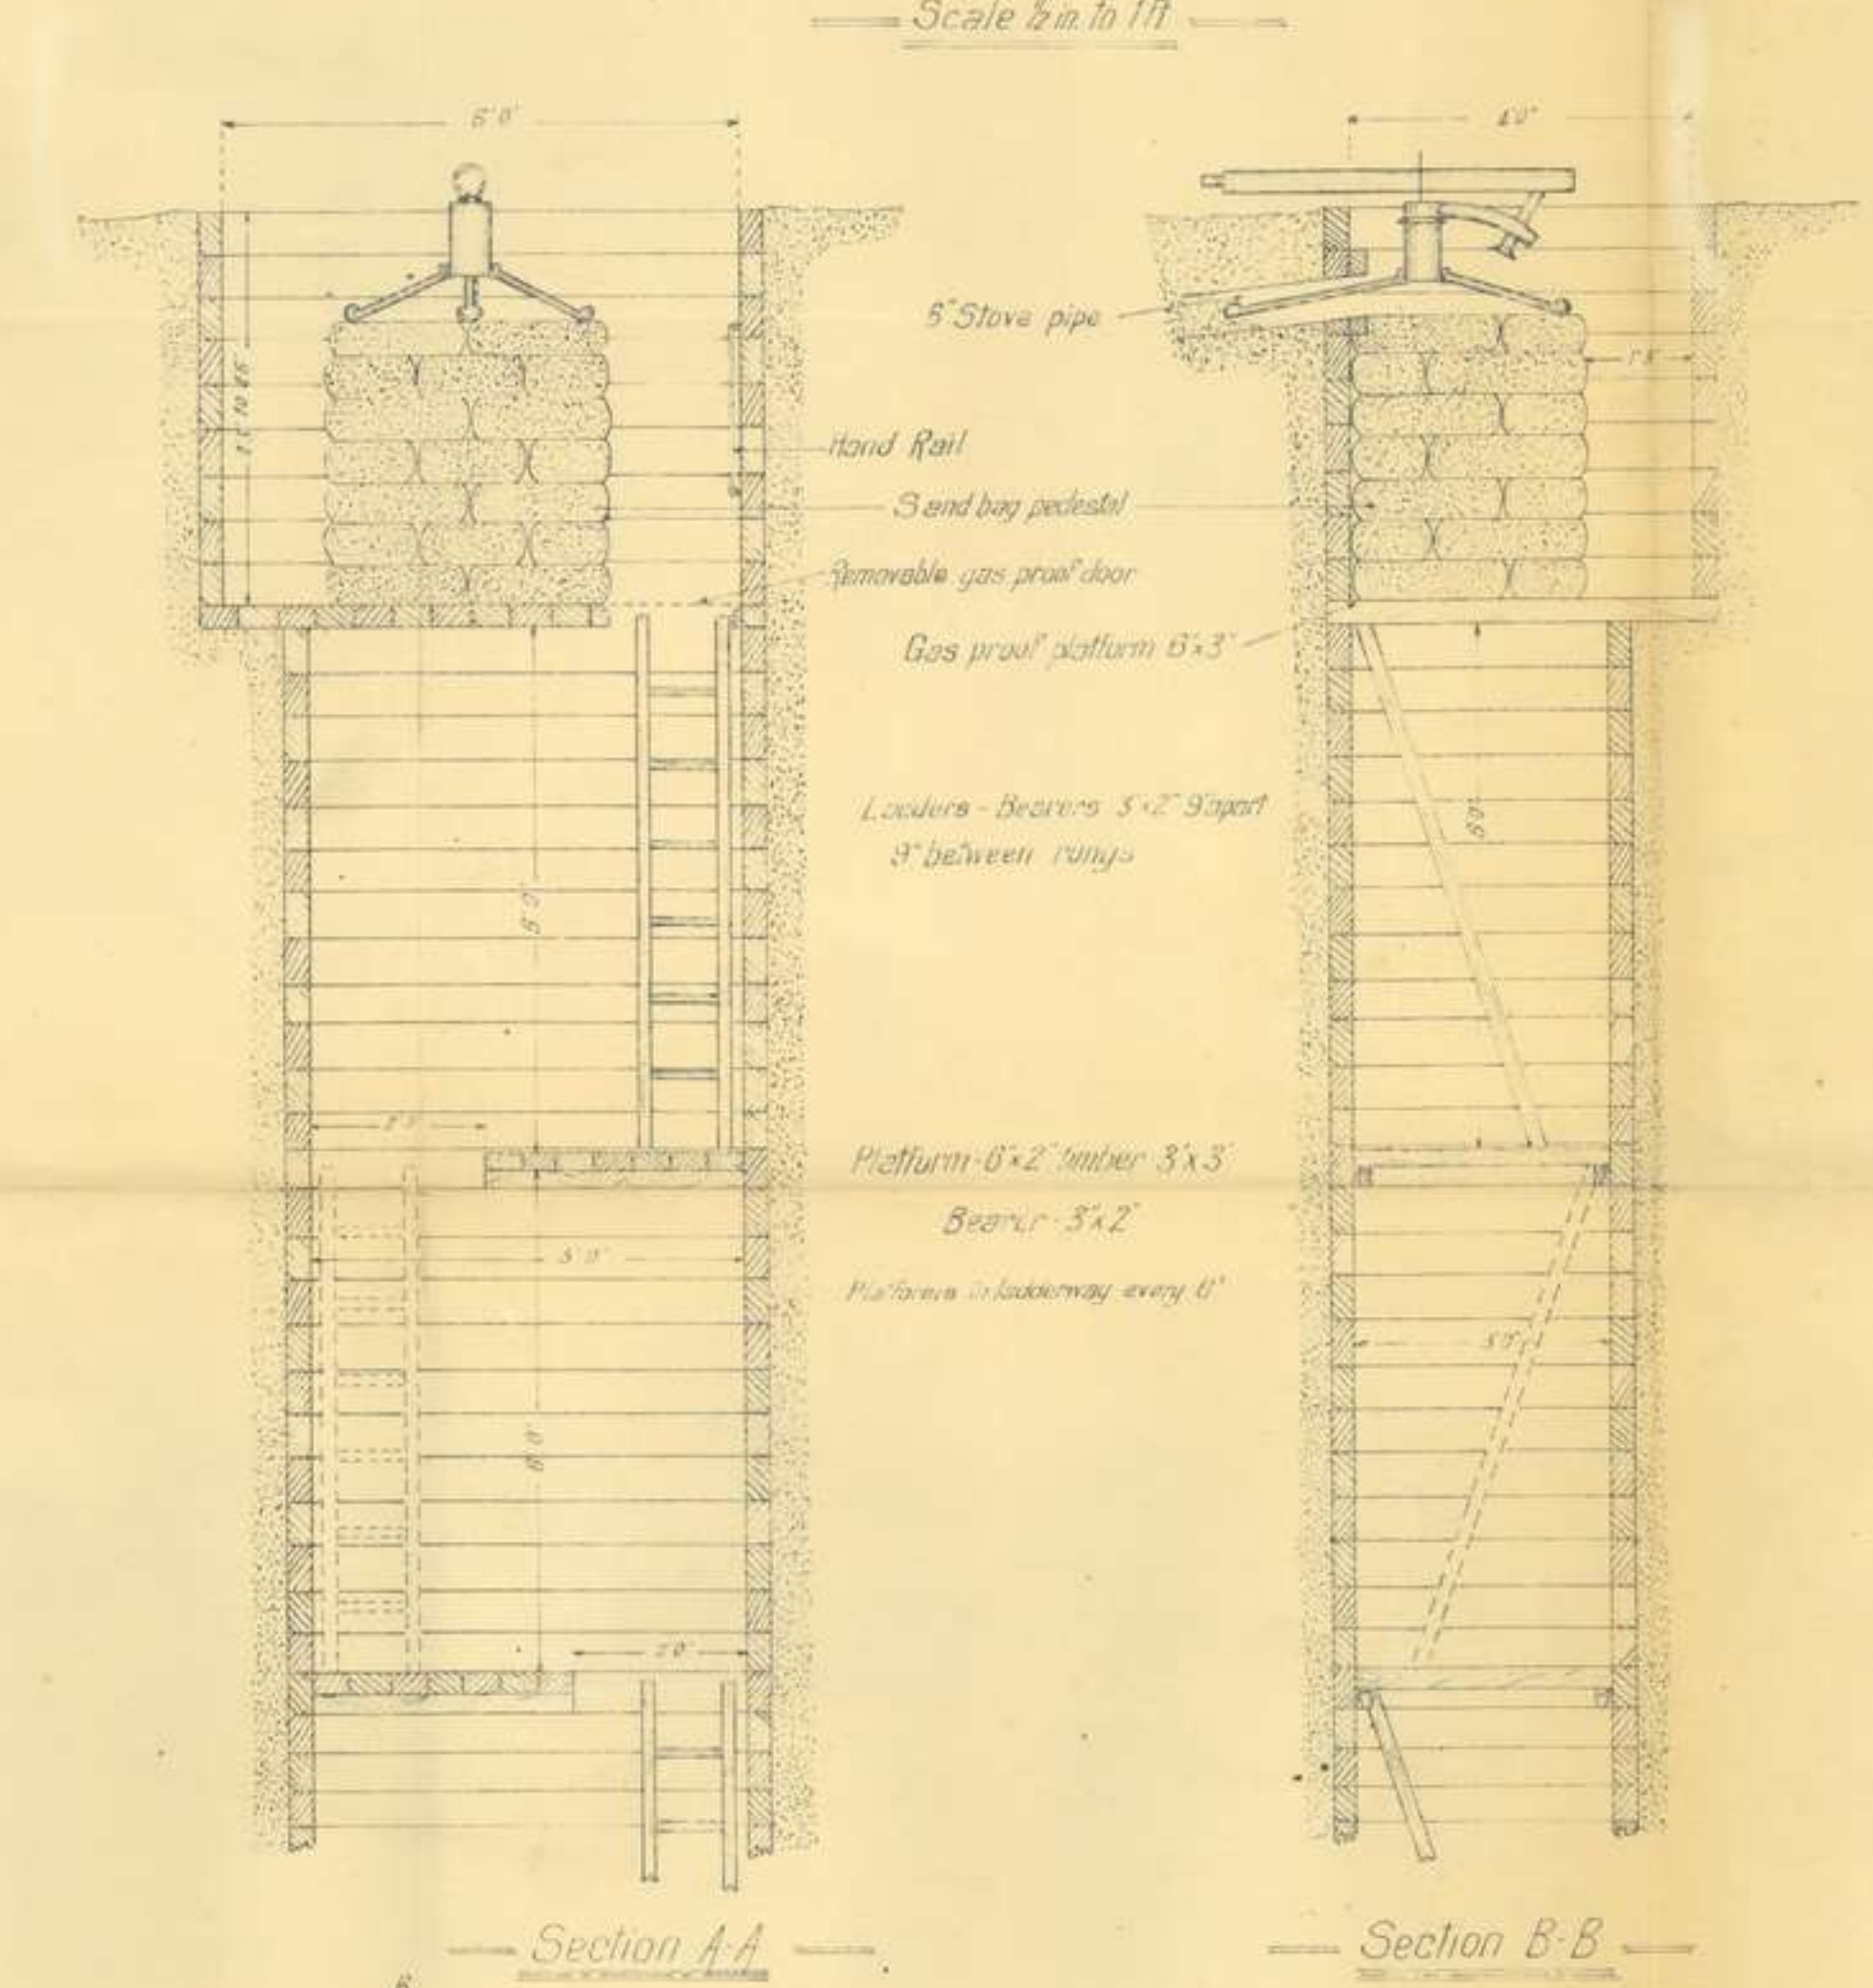 Scale ½ in. to 1 ft
6' 0"
4' 0"
6" Stove pipe
Hand Rail
Sand bag pedestal
Removable gas proof door
Gas proof platform 6"x3"
Ladders - Bearers 3"x2" 9" apart
9" between rungs
6' 0"
6' 0"
Platform - 6"x2" timber 3'x3'
Bearer - 3"x2"
Platforms in ladderway every 6'
5' 0"
3' 0"
6' 0"
2' 0"
Section A-A
Section B-B